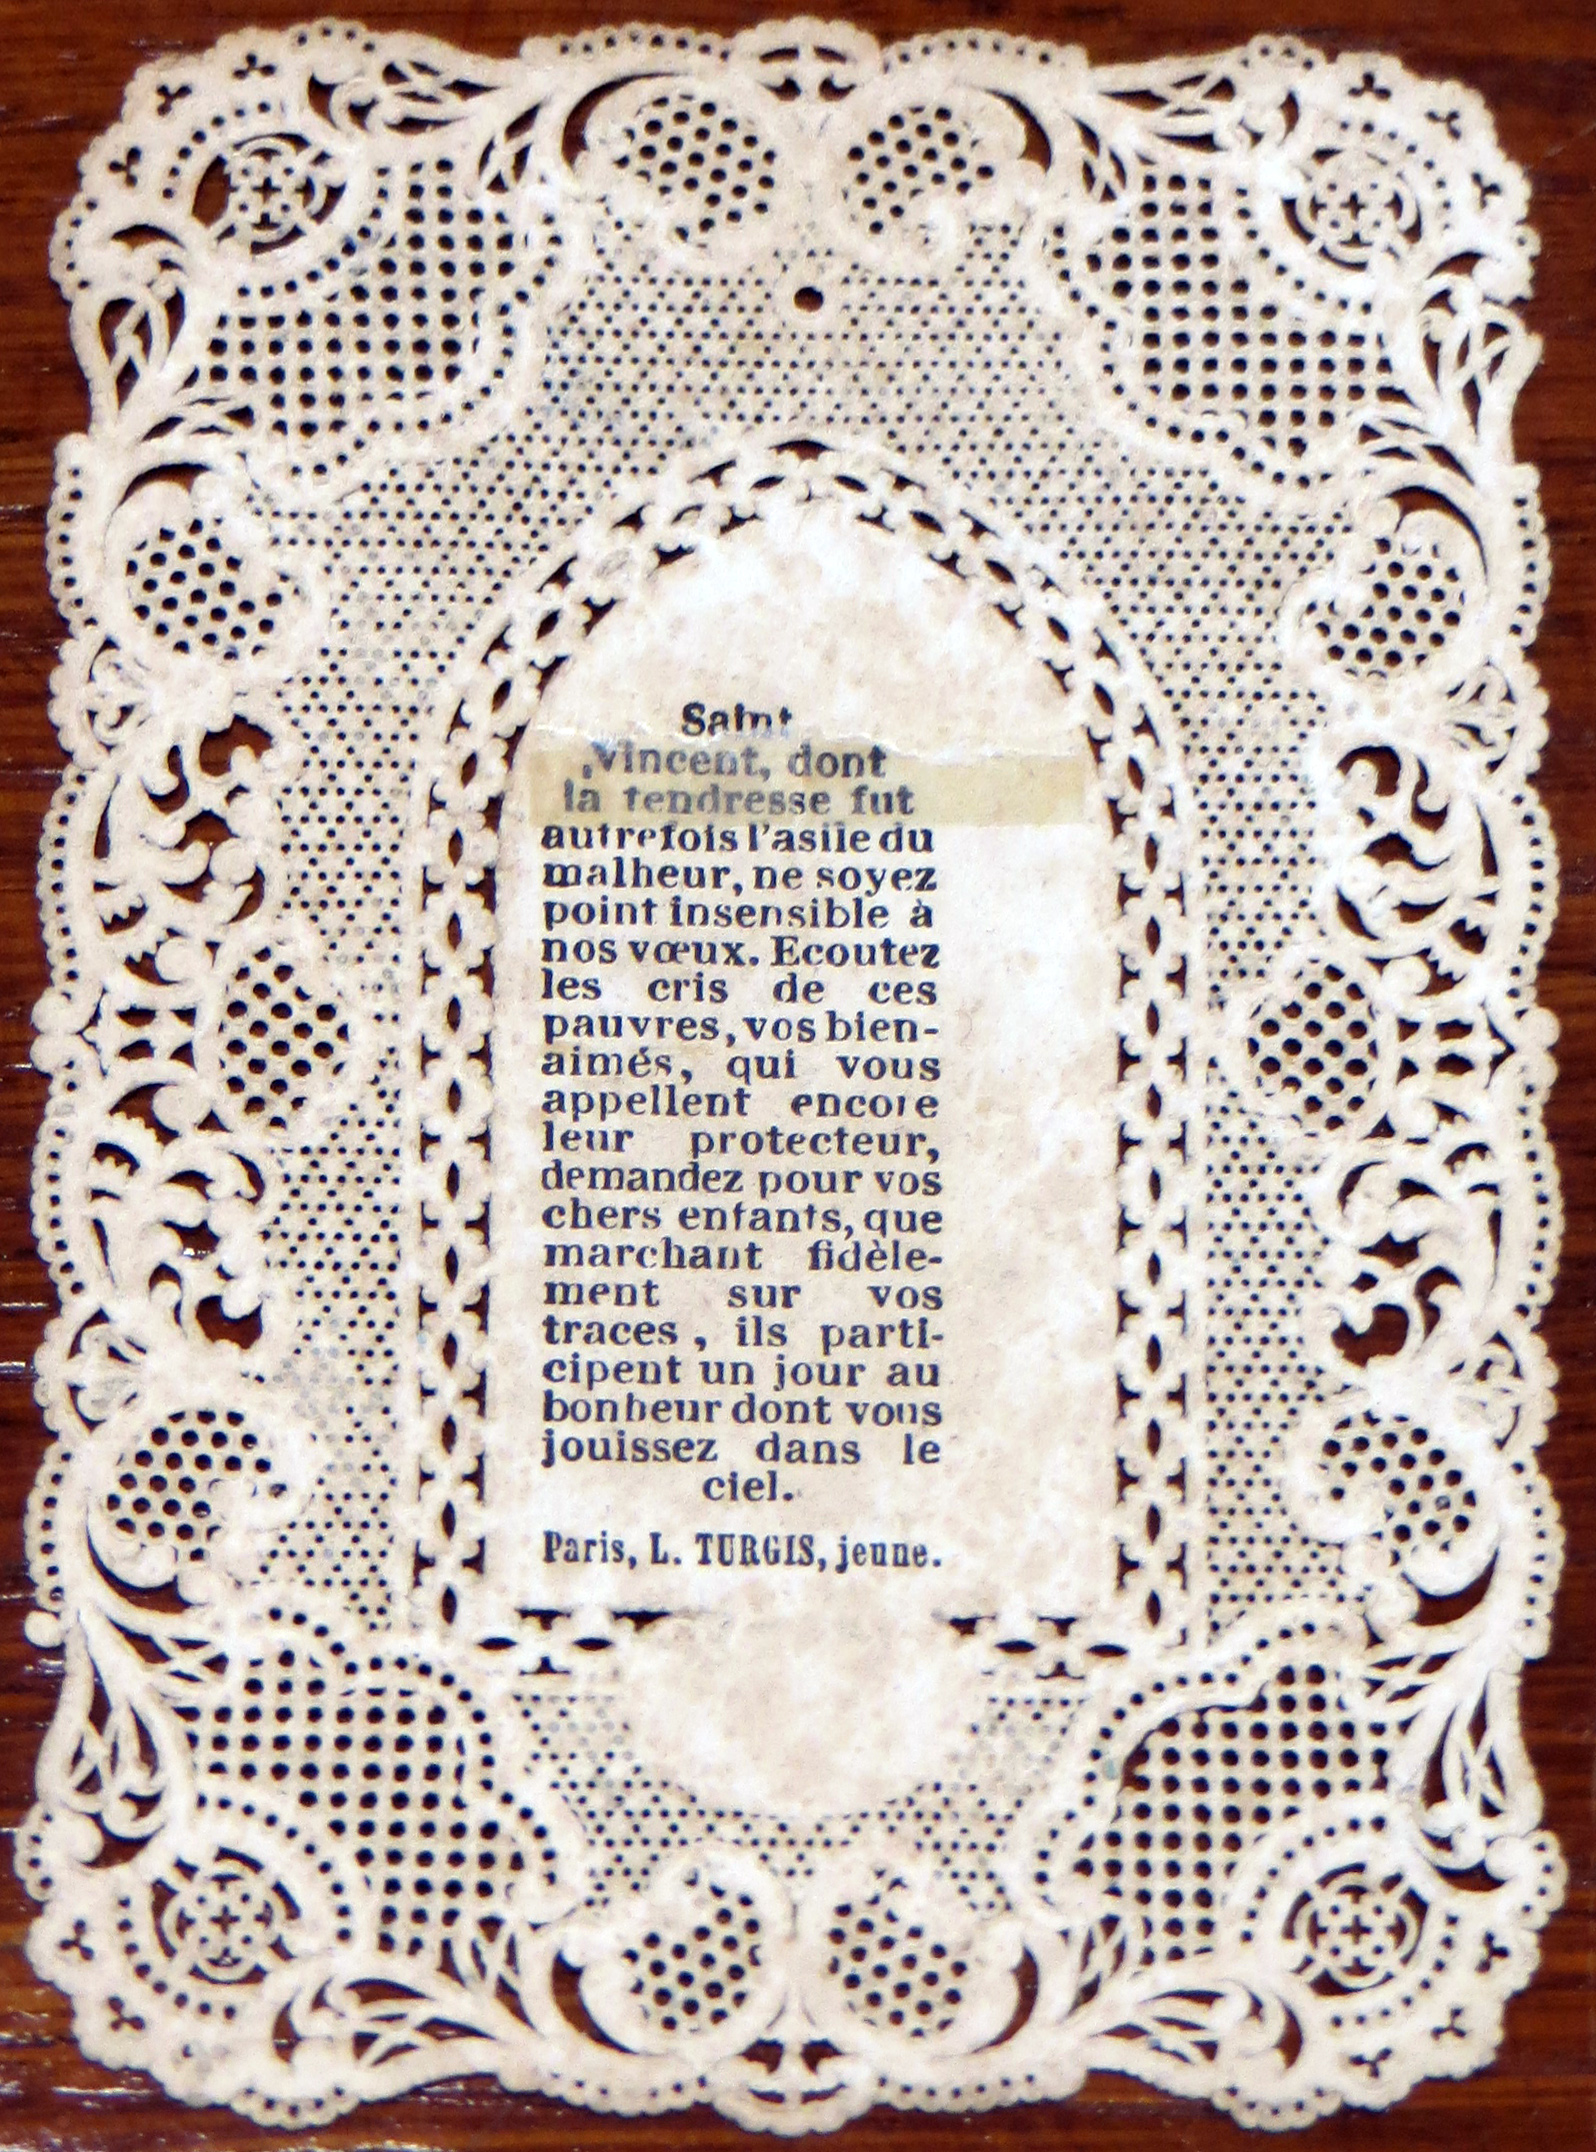 Saint
Vincent, dont
la tendresse fut
autrefois l'asile du
malheur, ne soyez
point insensible à
nos vœux. Ecoutez
les cris de ces
pauvres, vos bien-
aimés, qui vous
appellent encore
leur protecteur,
demandez pour vos
chers enfants, que
marchant fidèle-
ment sur vos
traces, ils parti-
cipent un jour au
bonheur dont vous
jouissez dans le
ciel.
Paris, L. TURGIS, jeune.